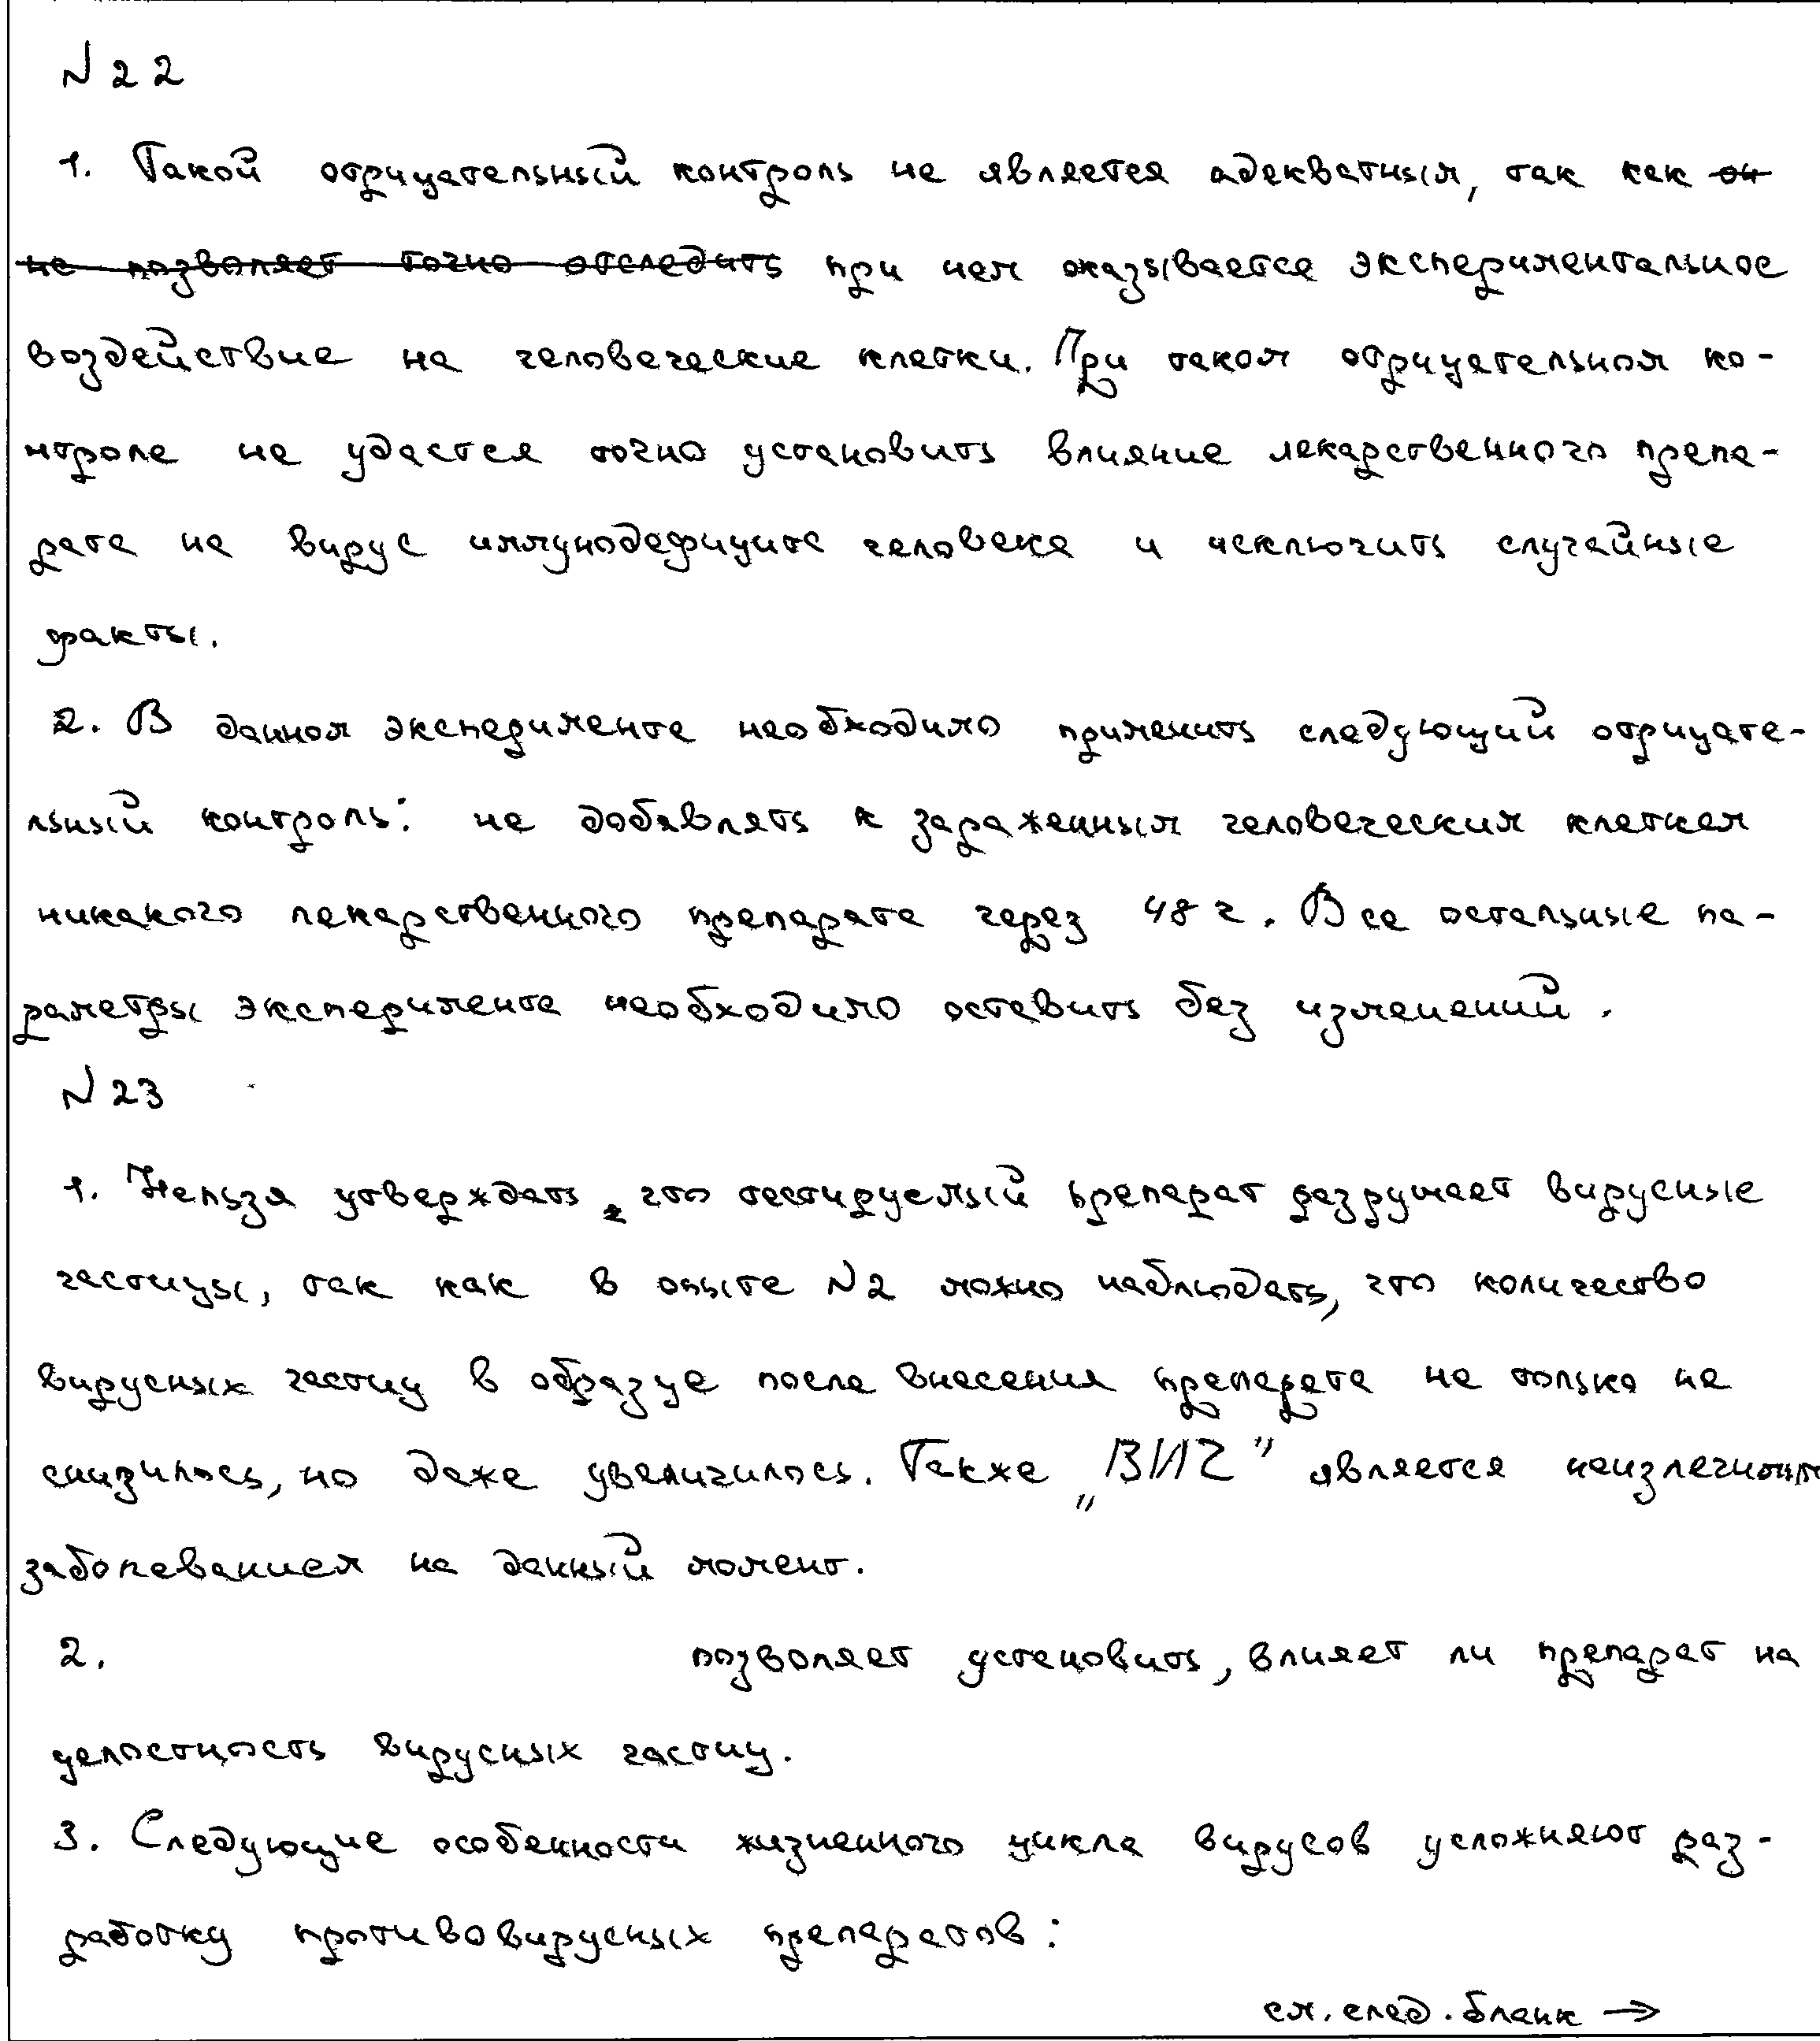 N 22
1. Такой отрицательный контроль не является адекватным, так как он
не позволяет точно отследить при нем оказывается экспериментальное
воздействие на человеческие клетки. При таком отрицательном ко-
нтроле не удастся точно установить влияние лекарственного препа-
рата на вирус иммунодефицита человека и исключить случайные
факты.
2. В данном эксперименте необходимо применить следующий отрицате-
льный контроль: не добавлять к зараженным человеческим клеткам
никакого лекарственного препарата через 48 ч. Все остальные па-
раметры эксперимента необходимо оставить без изменений.
N 23
1. Нельзя утверждать, что тестируемый препарат разрушает вирусные
частицы, так как в опыте N2 можно наблюдать, что количество
вирусных частиц в образце после внесения препарата не только не
снизилось, но даже увеличилось. Также „ВИЧ" является неизлечимым
заболеванием на данный момент.
2. позволяет установить, влияет ли препарат на
целостность вирусных частиц.
3. Следующие особенности жизненного цикла вирусов усложняют раз-
работку противовирусных препаратов:
см. след. бланк →